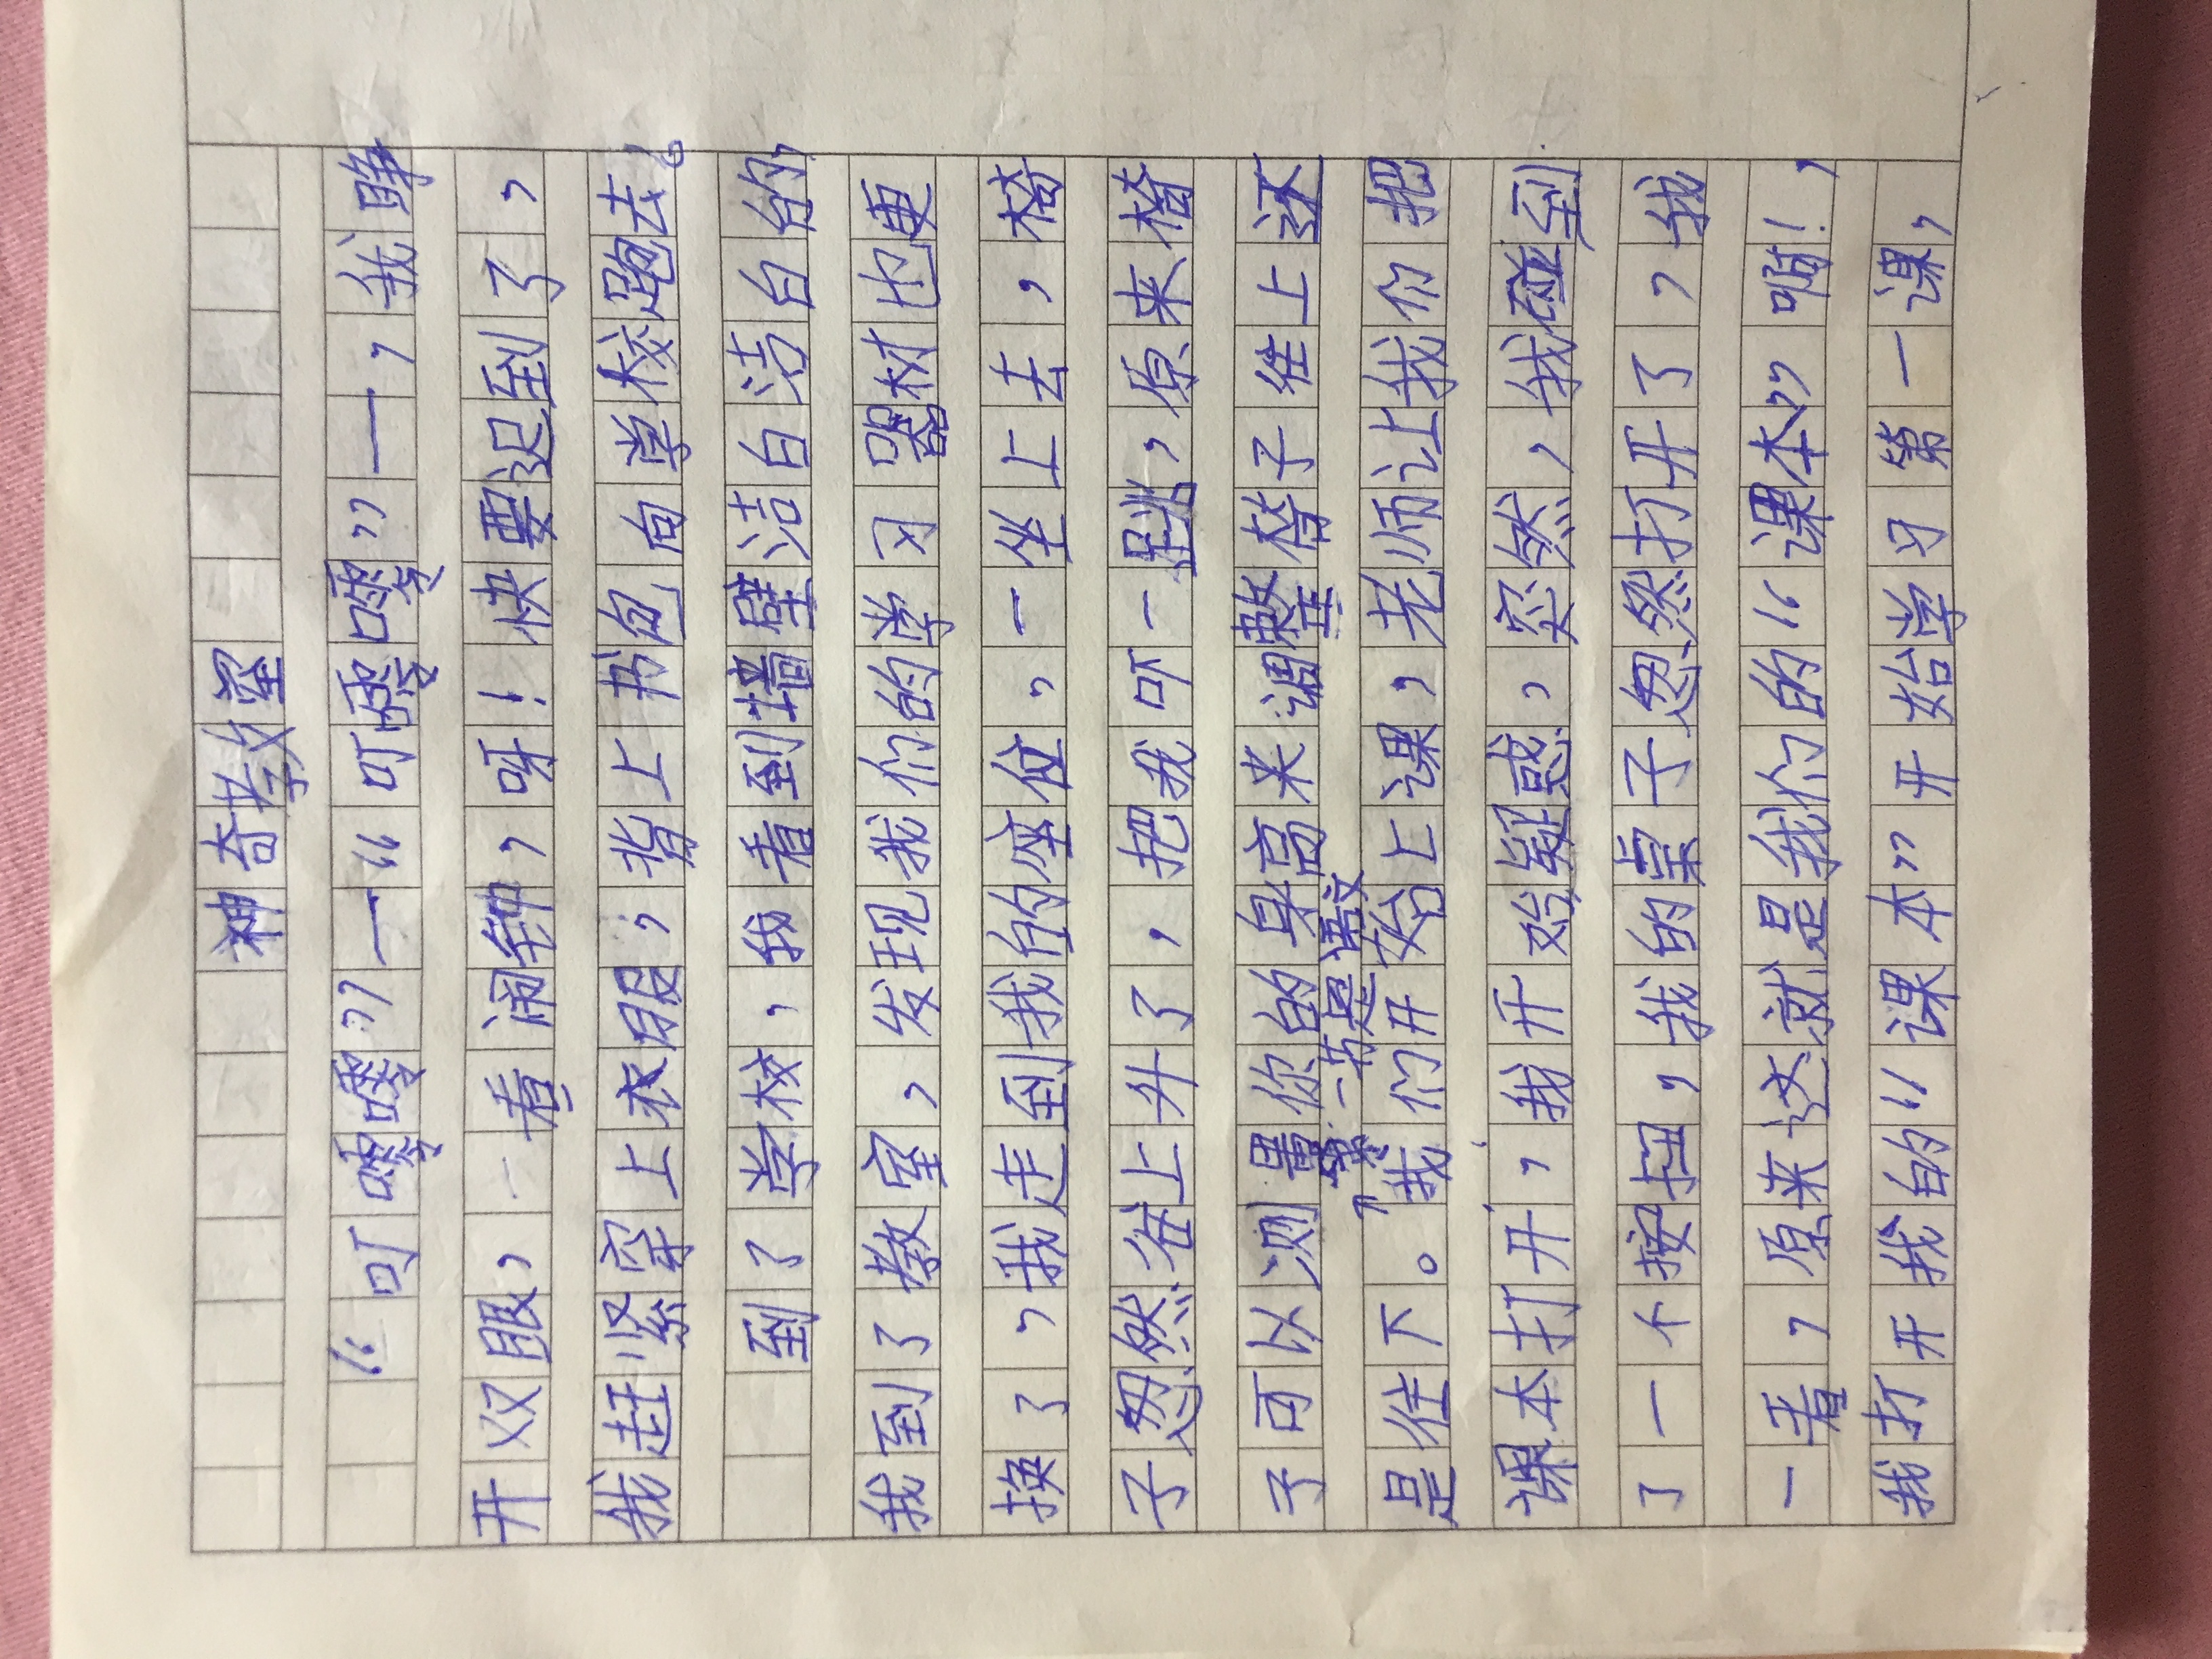 神奇教室
“叮嘹嘹”一“叮嘹嘹”一，我睁
开双眼，一看闹钟，呀！快要迟到了，
我赶紧穿上衣服，背上书包向学校跑去。
到了学校，我看到墙壁洁白洁白的，
我到了教室，发现我们的学习器材也更
换了，我走到我的座位，一坐上去，椅
子忽然往上升了，把我吓一跳，原来椅
子可以测量你的身高来调整椅子往上还
是往下。我们开始上课，老师让我们把
第一节是语文
课本打开，我开始疑惑，突然，我碰到
了一个按扭，我的桌子忽然打开了，我
一看，原来这就是我们的“课本”啊！，
我打开我的“课本”开始学习第一课，